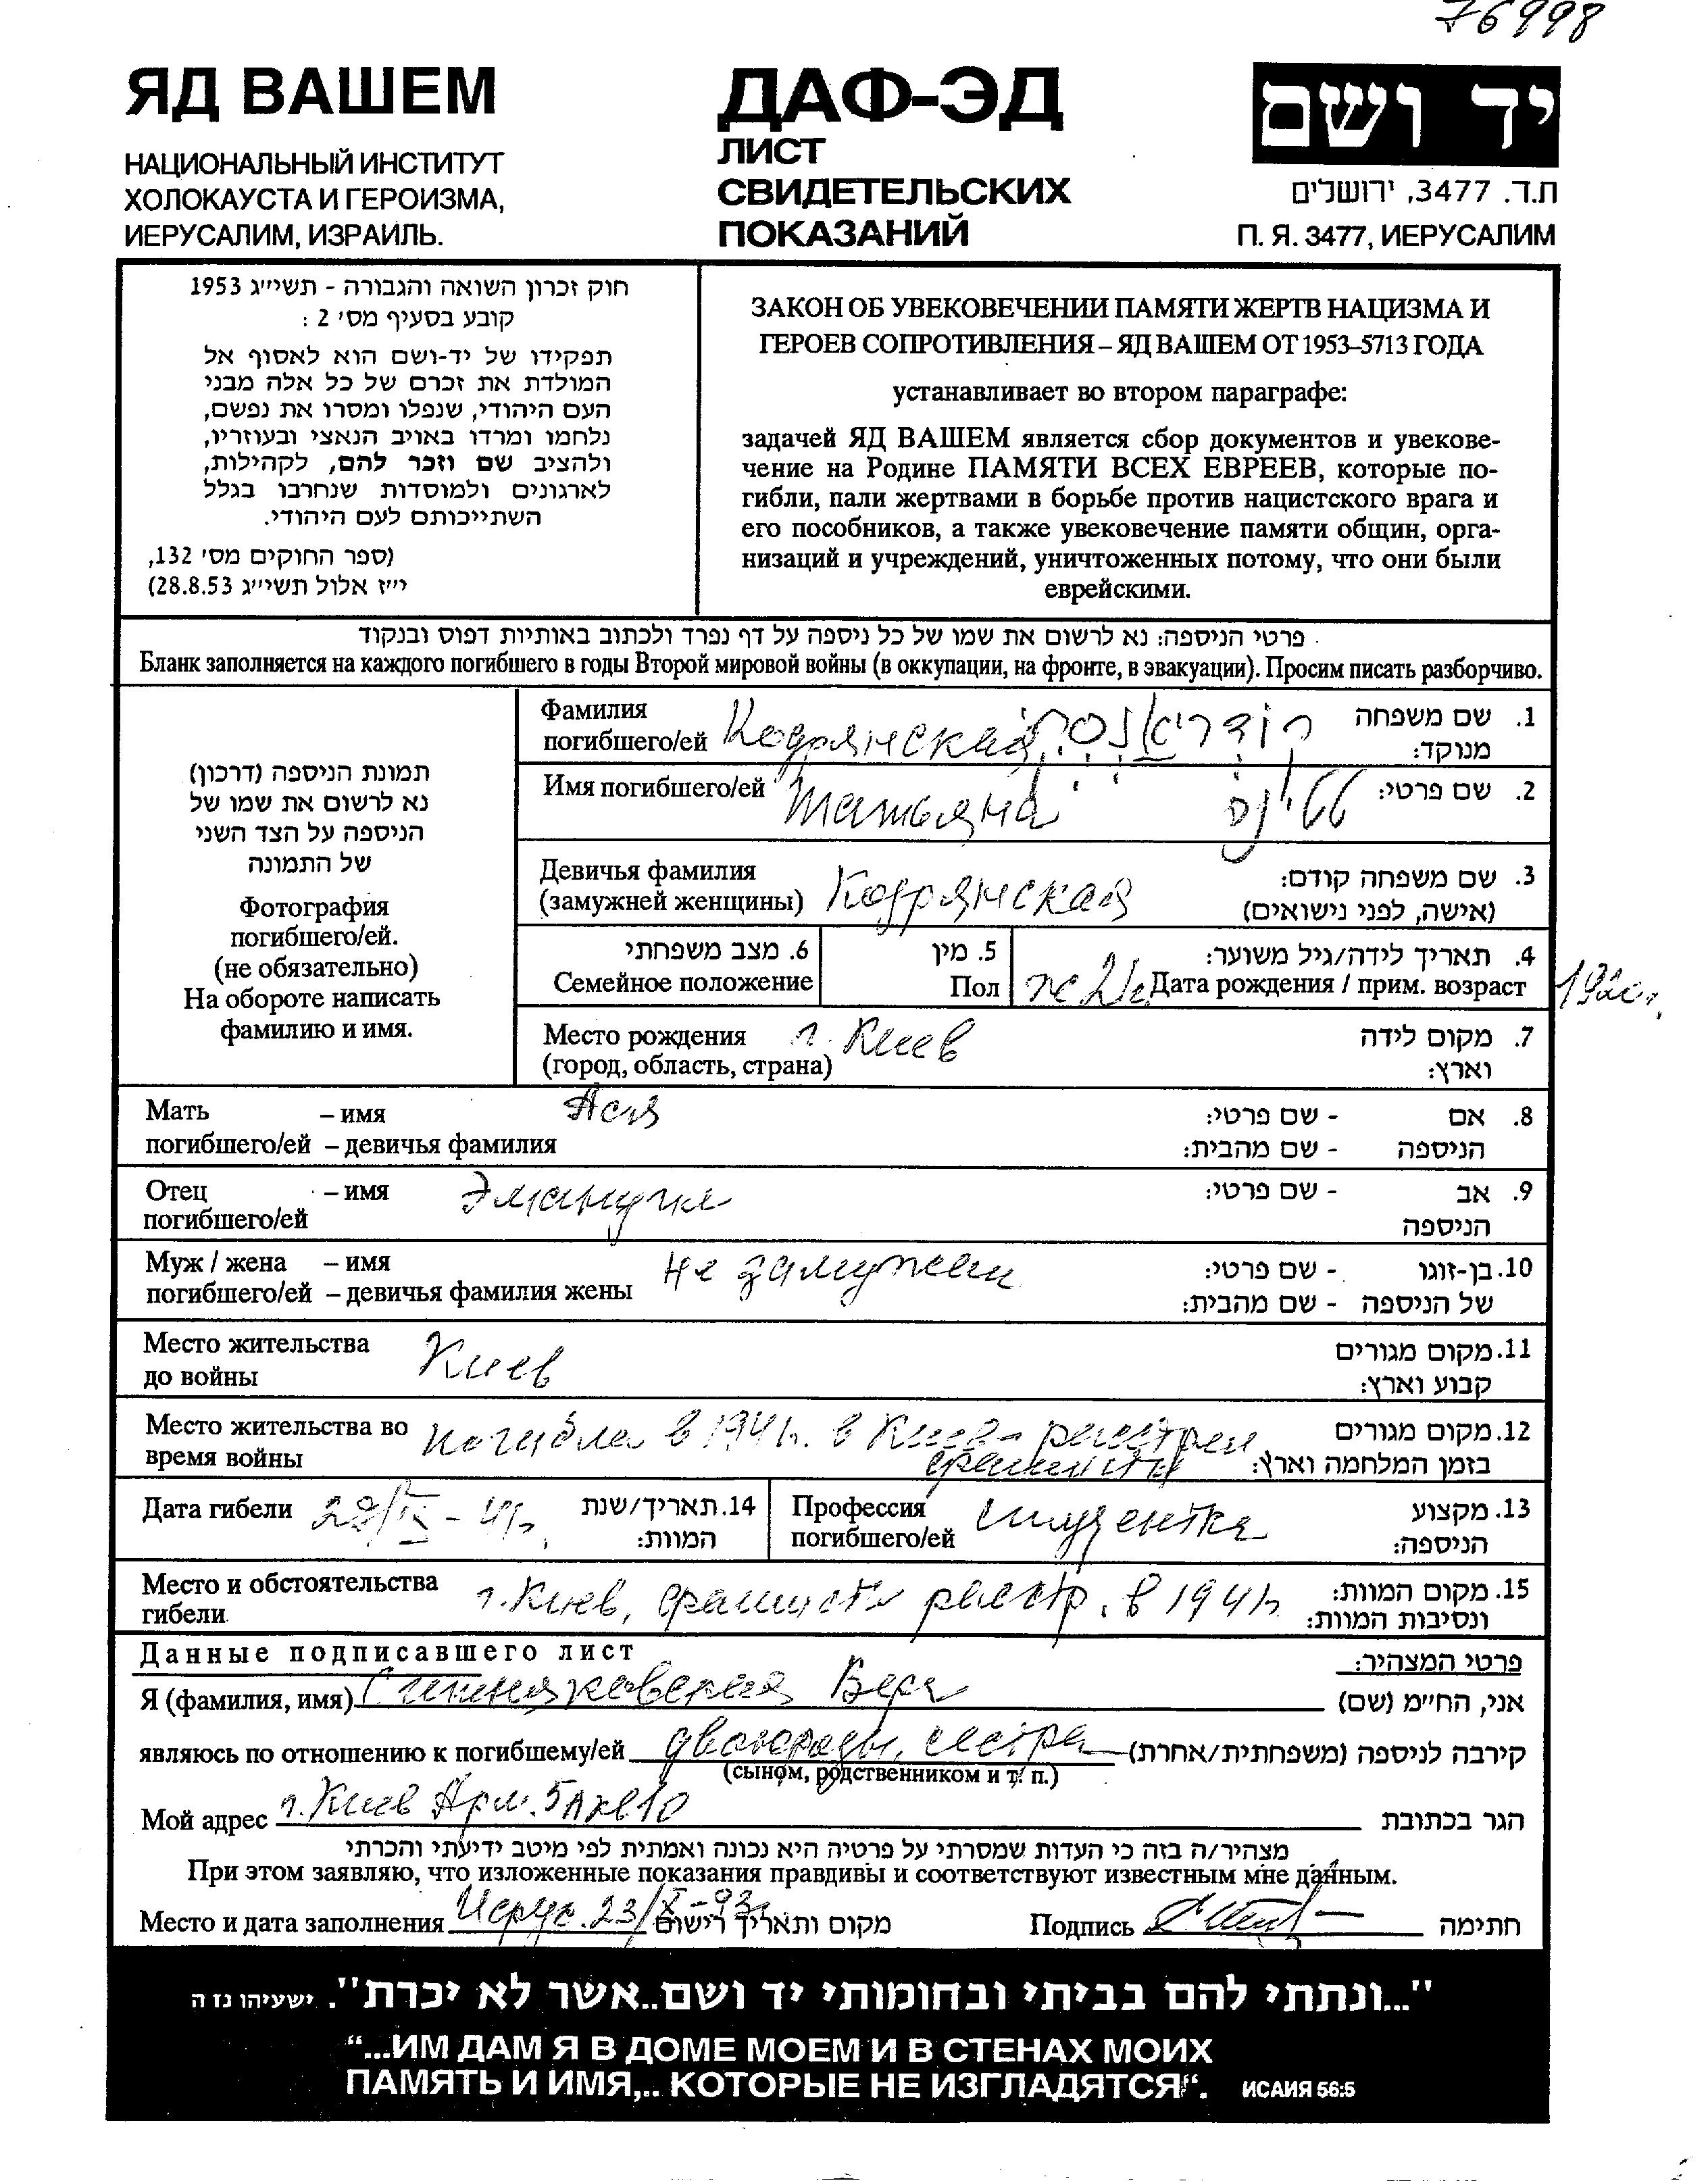 76998
ЯД ВАШЕМ
НАЦИОНАЛЬНЫЙ ИНСТИТУТ
ХОЛОКАУСТА И ГЕРОИЗМА,
ИЕРУСАЛИМ, ИЗРАИЛЬ.
ДАФ-ЭД
ЛИСТ
СВИДЕТЕЛЬСКИХ
ПОКАЗАНИЙ
יד ושם
ת.ד. 3477, ירושלים
П. Я. 3477, ИЕРУСАЛИМ
חוק זכרון השואה והגבורה - תשי״ג 1953
קובע בסעיף מס׳ 2 :
תפקידו של יד-ושם הוא לאסוף אל
המולדת את זכרם של כל אלה מבני
העם היהודי, שנפלו ומסרו את נפשם,
נלחמו ומרדו באויב הנאצי ובעוזריו,
ולהציב שם וזכר להם, לקהילות,
לארגונים ולמוסדות שנחרבו בגלל
השתייכותם לעם היהודי.
(ספר החוקים מס׳ 132,
י״ז אלול תשי״ג 28.8.53)
ЗАКОН ОБ УВЕКОВЕЧЕНИИ ПАМЯТИ ЖЕРТВ НАЦИЗМА И
ГЕРОЕВ СОПРОТИВЛЕНИЯ – ЯД ВАШЕМ ОТ 1953–5713 ГОДА
устанавливает во втором параграфе:
задачей ЯД ВАШЕМ является сбор документов и увекове-
чение на Родине ПАМЯТИ ВСЕХ ЕВРЕЕВ, которые по-
гибли, пали жертвами в борьбе против нацистского врага и
его пособников, а также увековечение памяти общин, орга-
низаций и учреждений, уничтоженных потому, что они были
еврейскими.
פרטי הניספה: נא לרשום את שמו של כל ניספה על דף נפרד ולכתוב באותיות דפוס ובנקוד
Бланк заполняется на каждого погибшего в годы Второй мировой войны (в оккупации, на фронте, в эвакуации). Просим писать разборчиво.
תמונת הניספה (דרכון)
נא לרשום את שמו של
הניספה על הצד השני
של התמונה
Фотография
погибшего/ей.
(не обязательно)
На обороте написать
фамилию и имя.
Фамилия погибшего/ей Кодрянская 1. שם משפחה
מנוקד:
Имя погибшего/ей Татьяна 2. שם פרטי:
Девичья фамилия Кодрянская 3. שם משפחה קודם:
(замужней женщины) (אישה, לפני נישואים)
6. מצב משפחתי 5. מין 4. תאריך לידה/גיל משוער:
Семейное положение Пол ж 21г Дата рождения / прим. возраст 1920г.
Место рождения г. Киев 7. מקום לידה
(город, область, страна) וארץ:
Мать – имя Ася 8. אם - שם פרטי:
погибшего/ей – девичья фамилия הניספה - שם מהבית:
Отец – имя Эмануил 9. אב - שם פרטי:
погибшего/ей הניספה
Муж / жена – имя не замужем 10. בן-זוגו - שם פרטי:
погибшего/ей – девичья фамилия жены של הניספה - שם מהבית:
Место жительства Киев 11. מקום מגורים
до войны קבוע וארץ:
Место жительства во погибла в 1941г. в Киеве – расстрел. 12. מקום מגורים
время войны фашисты בזמן המלחמה וארץ:
Дата гибели 29/IX – 41г. 14. תאריך/שנת
המוות:
Профессия студентка 13. מקצוע
погибшего/ей הניספה:
Место и обстоятельства г. Киев, фашисты расстр. в 1941г. 15. מקום המוות:
гибели ונסיבות המוות:
Данные подписавшего лист פרטי המצהיר:
Я (фамилия, имя) Вера אני, הח״מ (שם)
являюсь по отношению к погибшему/ей двоюродн. сестра קירבה לניספה (משפחתית/אחרת)
(сыном, родственником и т. п.)
Мой адрес г. Киев Арм. 5А кв 10 הגר בכתובת
מצהיר/ה בזה כי העדות שמסרתי על פרטיה היא נכונה ואמתית לפי מיטב ידיעתי והכרתי
При этом заявляю, что изложенные показания правдивы и соответствуют известным мне данным.
Место и дата заполнения Иерус. 23/X – 93г. מקום ותאריך רישום Подпись חתימה
"...ונתתי להם בביתי ובחומותי יד ושם..אשר לא יכרת". ישעיהו נז ה
“...ИМ ДАМ Я В ДОМЕ МОЕМ И В СТЕНАХ МОИХ
ПАМЯТЬ И ИМЯ,.. КОТОРЫЕ НЕ ИЗГЛАДЯТСЯ“. ИСАИЯ 56:5